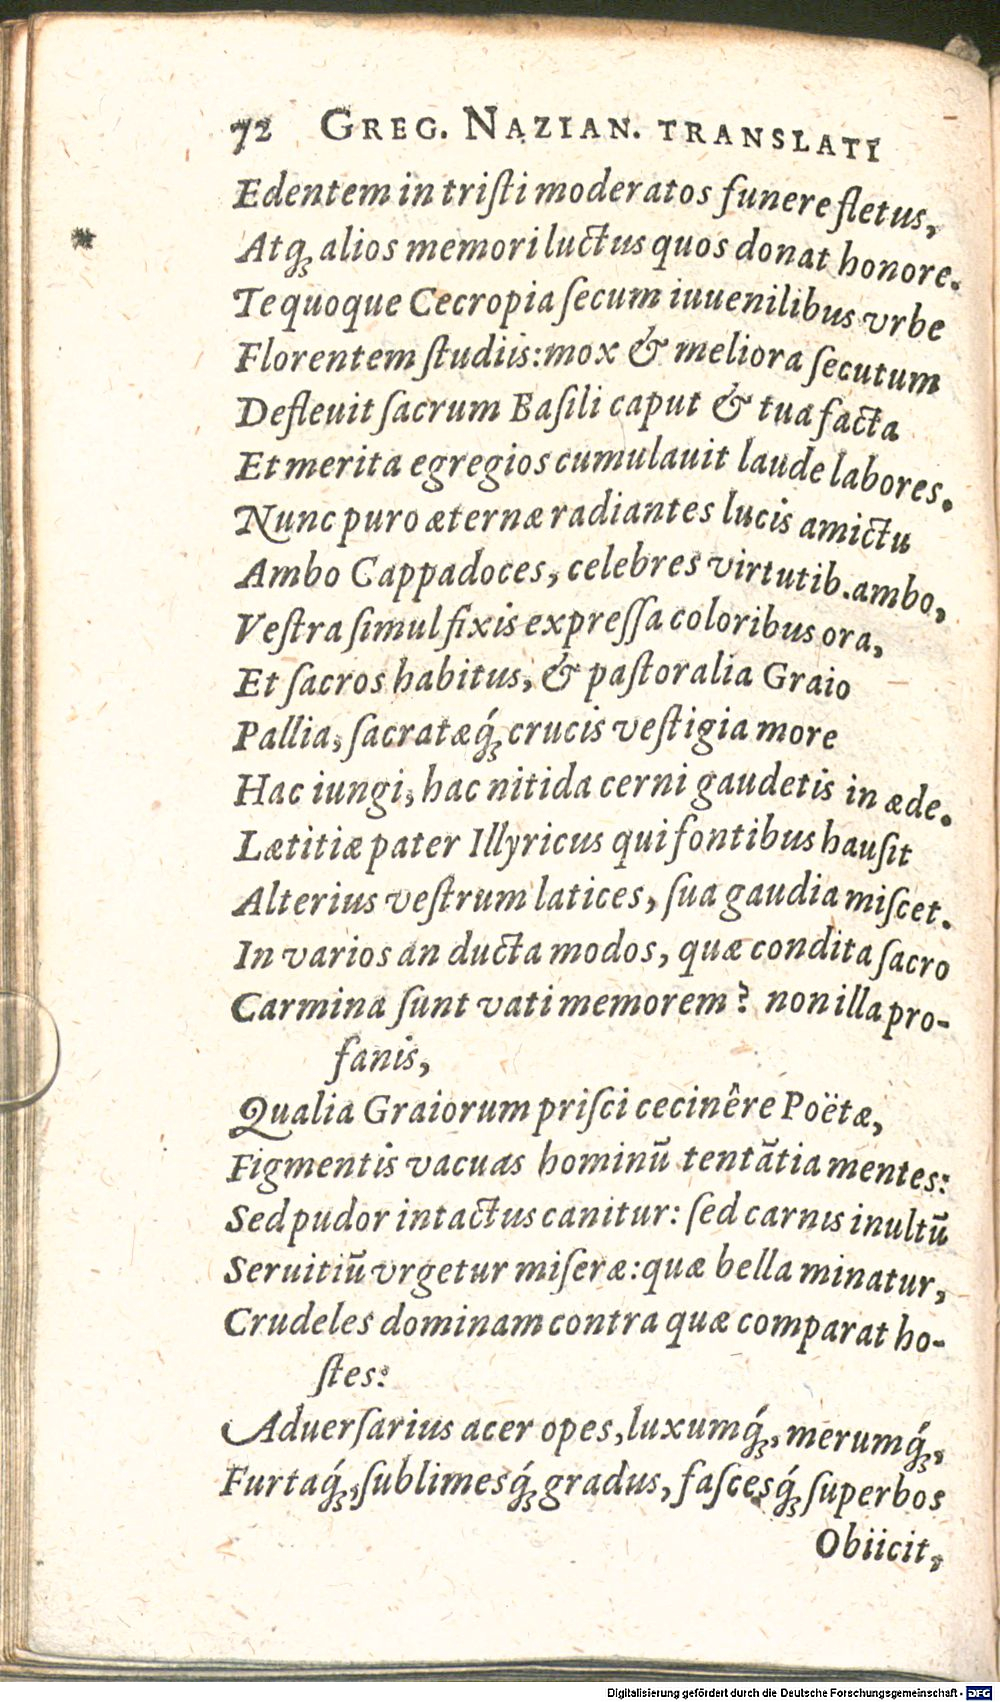 72 GREG. NAZIAN. TRANSLATI
Edentem in triſti moderatos funere fletus,
Atq́ꝫ alios memori luctus quos donat honore.
Te quoque Cecropia ſecum iuuenilibus vrbe
Florentem ſtudiis: mox & meliora ſecutum
Defleuit ſacrum Baſili caput & tua facta
Et merita egregios cumulauit laude labores.
Nunc puro æternæ radiantes lucis amictu
Ambo Cappadoces, celebres virtutib. ambo,
Veſtra ſimul fixis expreſſa coloribus ora,
Et ſacros habitus, & paſtoralia Graio
Pallia, ſacratæq́ꝫ crucis veſtigia more
Hac iungi, hac nitida cerni gaudetis in æde.
Lætitiæ pater Illyricus qui fontibus hauſit
Alterius veſtrum latices, ſua gaudia miſcet.
In varios an ducta modos, quæ condita ſacro
Carmina ſunt vati memorem? non illa pro-
fanis,
Qualia Graiorum priſci cecinêre Poëtæ,
Figmentis vacuas hominū tentātia mentes:
Sed pudor intactus canitur: ſed carnis inultū
Seruitiū vrgetur miſeræ: quæ bella minatur,
Crudeles dominam contra quæ comparat ho-
ſtes:
Aduerſarius acer opes, luxumq́ꝫ, merumq́ꝫ,
Furtaq́ꝫ, ſublimesq́ꝫ gradus, faſcesq́ꝫ ſuperbos
Obiicit,
Digitalisierung gefördert durch die Deutsche Forschungsgemeinschaft - DFG